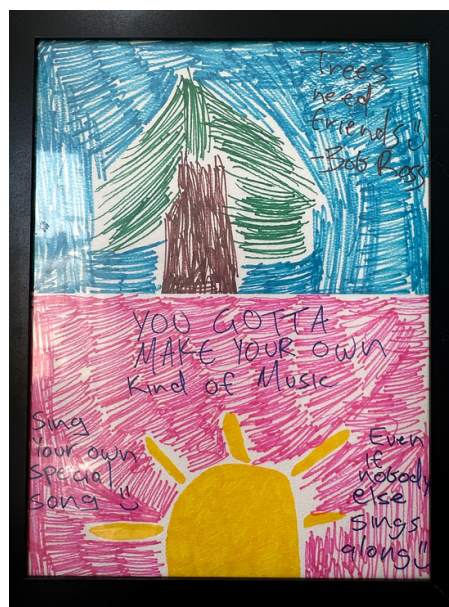 Trees
need
friends :)
-Bob Ross
YOU GOTTA
MAKE YOUR OWN
Kind of Music
Sing
Your own
special
song :)
Even
if
nobody
else
sings
along :)